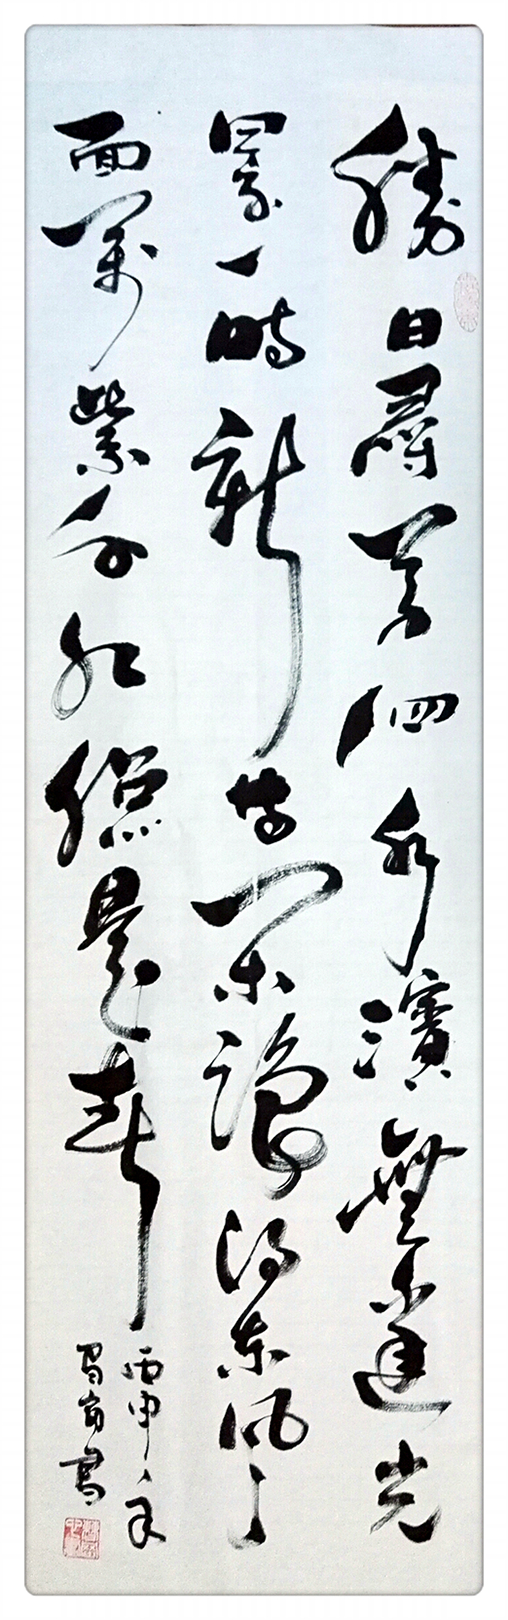 勝日尋芳泗水濱無邊光
景一時新等閒識得東風
面萬紫千紅總是春
丙申年
書